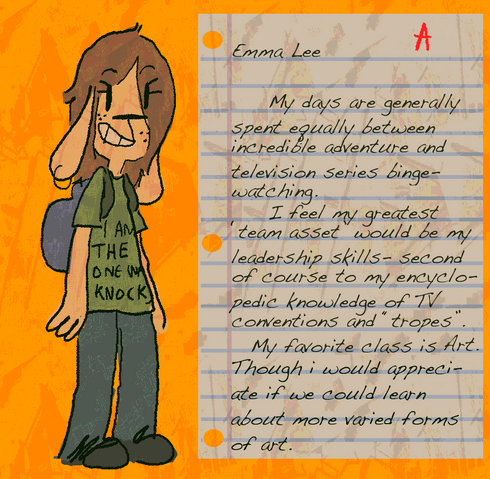 Emma Lee
A
My days are generally
spent equally between
incredible adventure and
television series binge-
watching.
I feel my greatest
"team asset" would be my
leadership skills- second
of course to my encyclo-
pedic knowledge of TV
conventions and "tropes".
My favorite class is Art.
Though i would appreci-
ate if we could learn
about more varied forms
of art.
I AM
THE
ONE
KNOCK